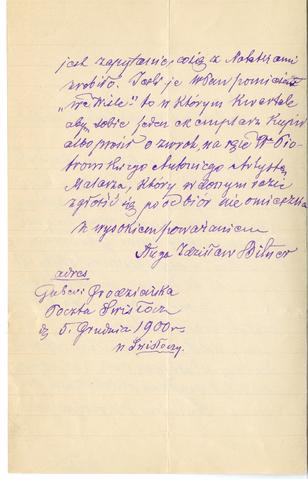 jest zapytanie, co się z Notatkami
zrobiło. Jeśli je W Pan pomieścił
"we Wiśle" to w którym kwartale
abym sobie jeden ekzemplarz kupił
albo proszę o zwrot, na ręce W Pio-
trowskiego Antoniego Artysty
Malarza, który w danym razie
zgłosić się po odbiór nie omieszka
z wysokiem poważaniem
Sługa Zdzisław
adres
Gubern. Grodzieńska
Poczta Świsłocz
d. 5. Grudnia 1900 r.
w Świsłoczy.